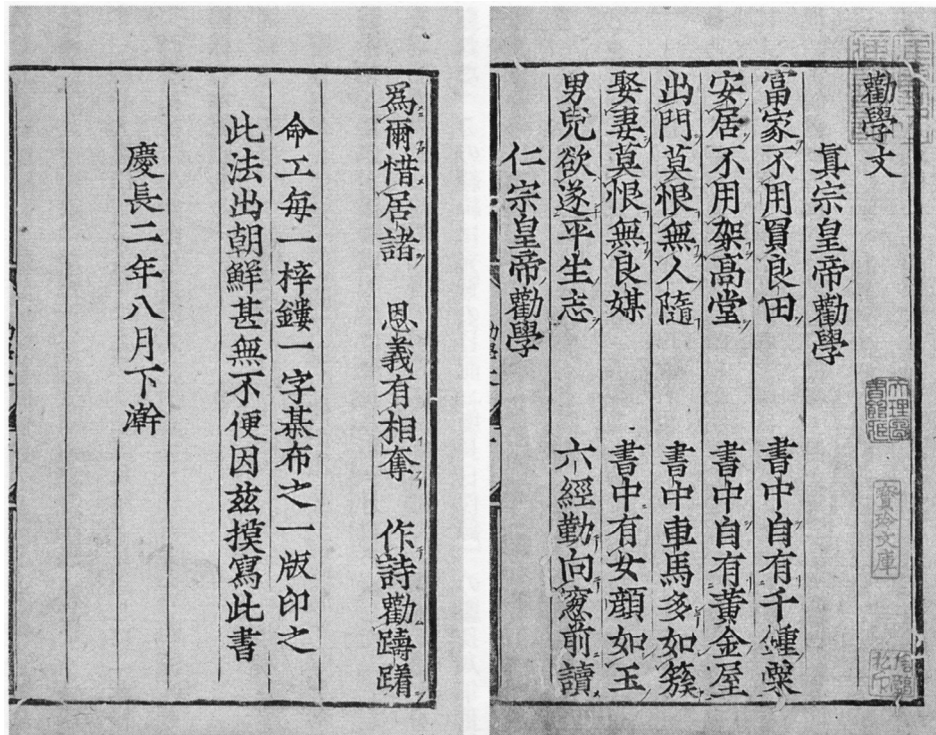 勸學文
眞宗皇帝勸學
富家不用買良田　書中自有千鍾粟
安居不用架高堂　書中自有黃金屋
出門莫恨無人隨　書中車馬多如簇
娶妻莫恨無良媒　書中有女顏如玉
男兒欲遂平生志　六經勤向窓前讀
仁宗皇帝勸學
天理圖書館藏
寶玲文庫
爲爾惜居諸　恩義有相奪　作詩勸躊躇
命工每一梓鏤一字棊布之一版印之
此法出朝鮮甚無不便因茲摸寫此書
慶長二年八月下澣